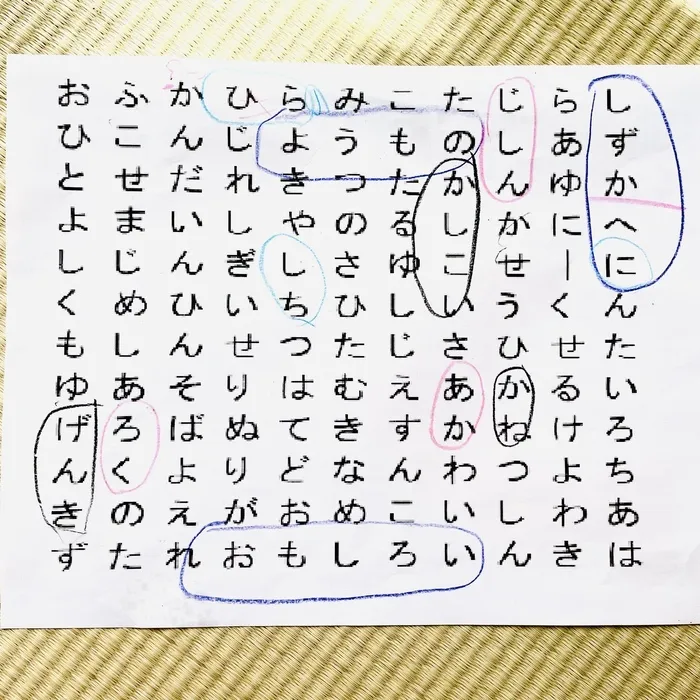 しずかへにんたいろちあは
らあゆにーくせるけよわき
じしんがせうひかねつしん
たのかしこいさあかわいい
こもたるゆしじえすんころ
みうつのさひたむきなめし
らよきやしちつはてどおも
ひじれしぎいせりぬりがお
かんだいんひんそばよえれ
ふこせまじめしあろくのた
おひとよしくもゆげんきず